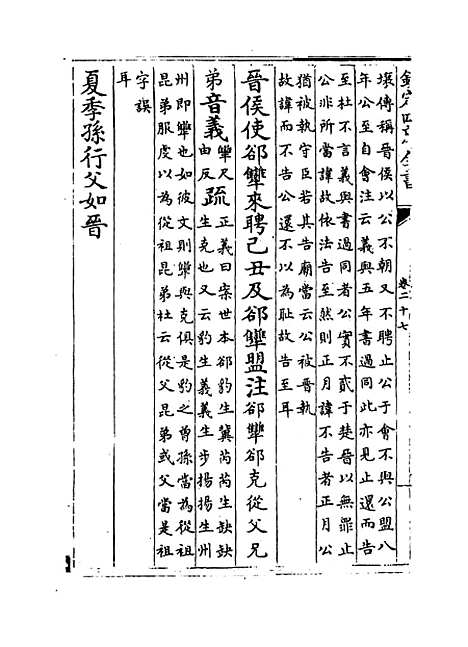 欽定四庫全書
卷二十七
壤傳稱晉侯以公不朝又不聘止公于會不與公盟八
年公至自會注云義與五年書過同此亦見止還而告
至杜不言義與書過同者公實不貳于楚晉以無罪止
公非所當諱故依法告至然則正月諱不告者正月公
猶被執守臣若其告廟當云公被晉執
故諱而不告公還不以為恥故告至耳
晉侯使郤犫來聘己丑及郤犫盟注郤犫郤克從父兄
弟音義犫尺由反疏正義曰案世本郤豹生冀芮芮生缺缺
生克也又云豹生義義生步揚揚生州
州即犫也如彼文則犫與克俱是豹之曾孫當為從祖
昆弟服虔以為從祖昆弟杜云從父昆弟或父當是祖
字誤
耳
夏季孫行父如晉